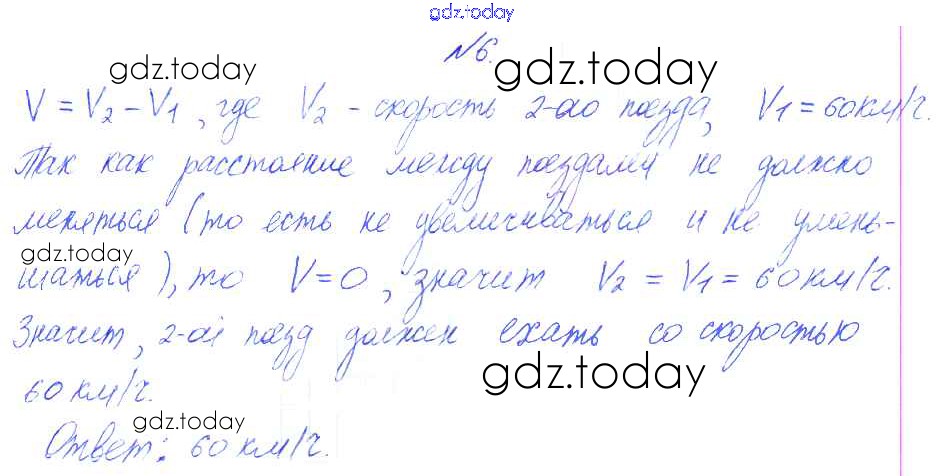 gdz.today
№6.
gdz.today gdz.today
V = V₂ – V₁, где V₂ – скорость 2-ого поезда, V₁ = 60 км/ч.
Так как расстояние между поездами не должно
меняться (то есть не увеличиваться и не умень-
gdz.today
шаться), то V = 0, значит V₂ = V₁ = 60 км/ч.
Значит, 2-ой поезд должен ехать со скоростью
gdz.today
60 км/ч.
gdz.today
Ответ: 60 км/ч.